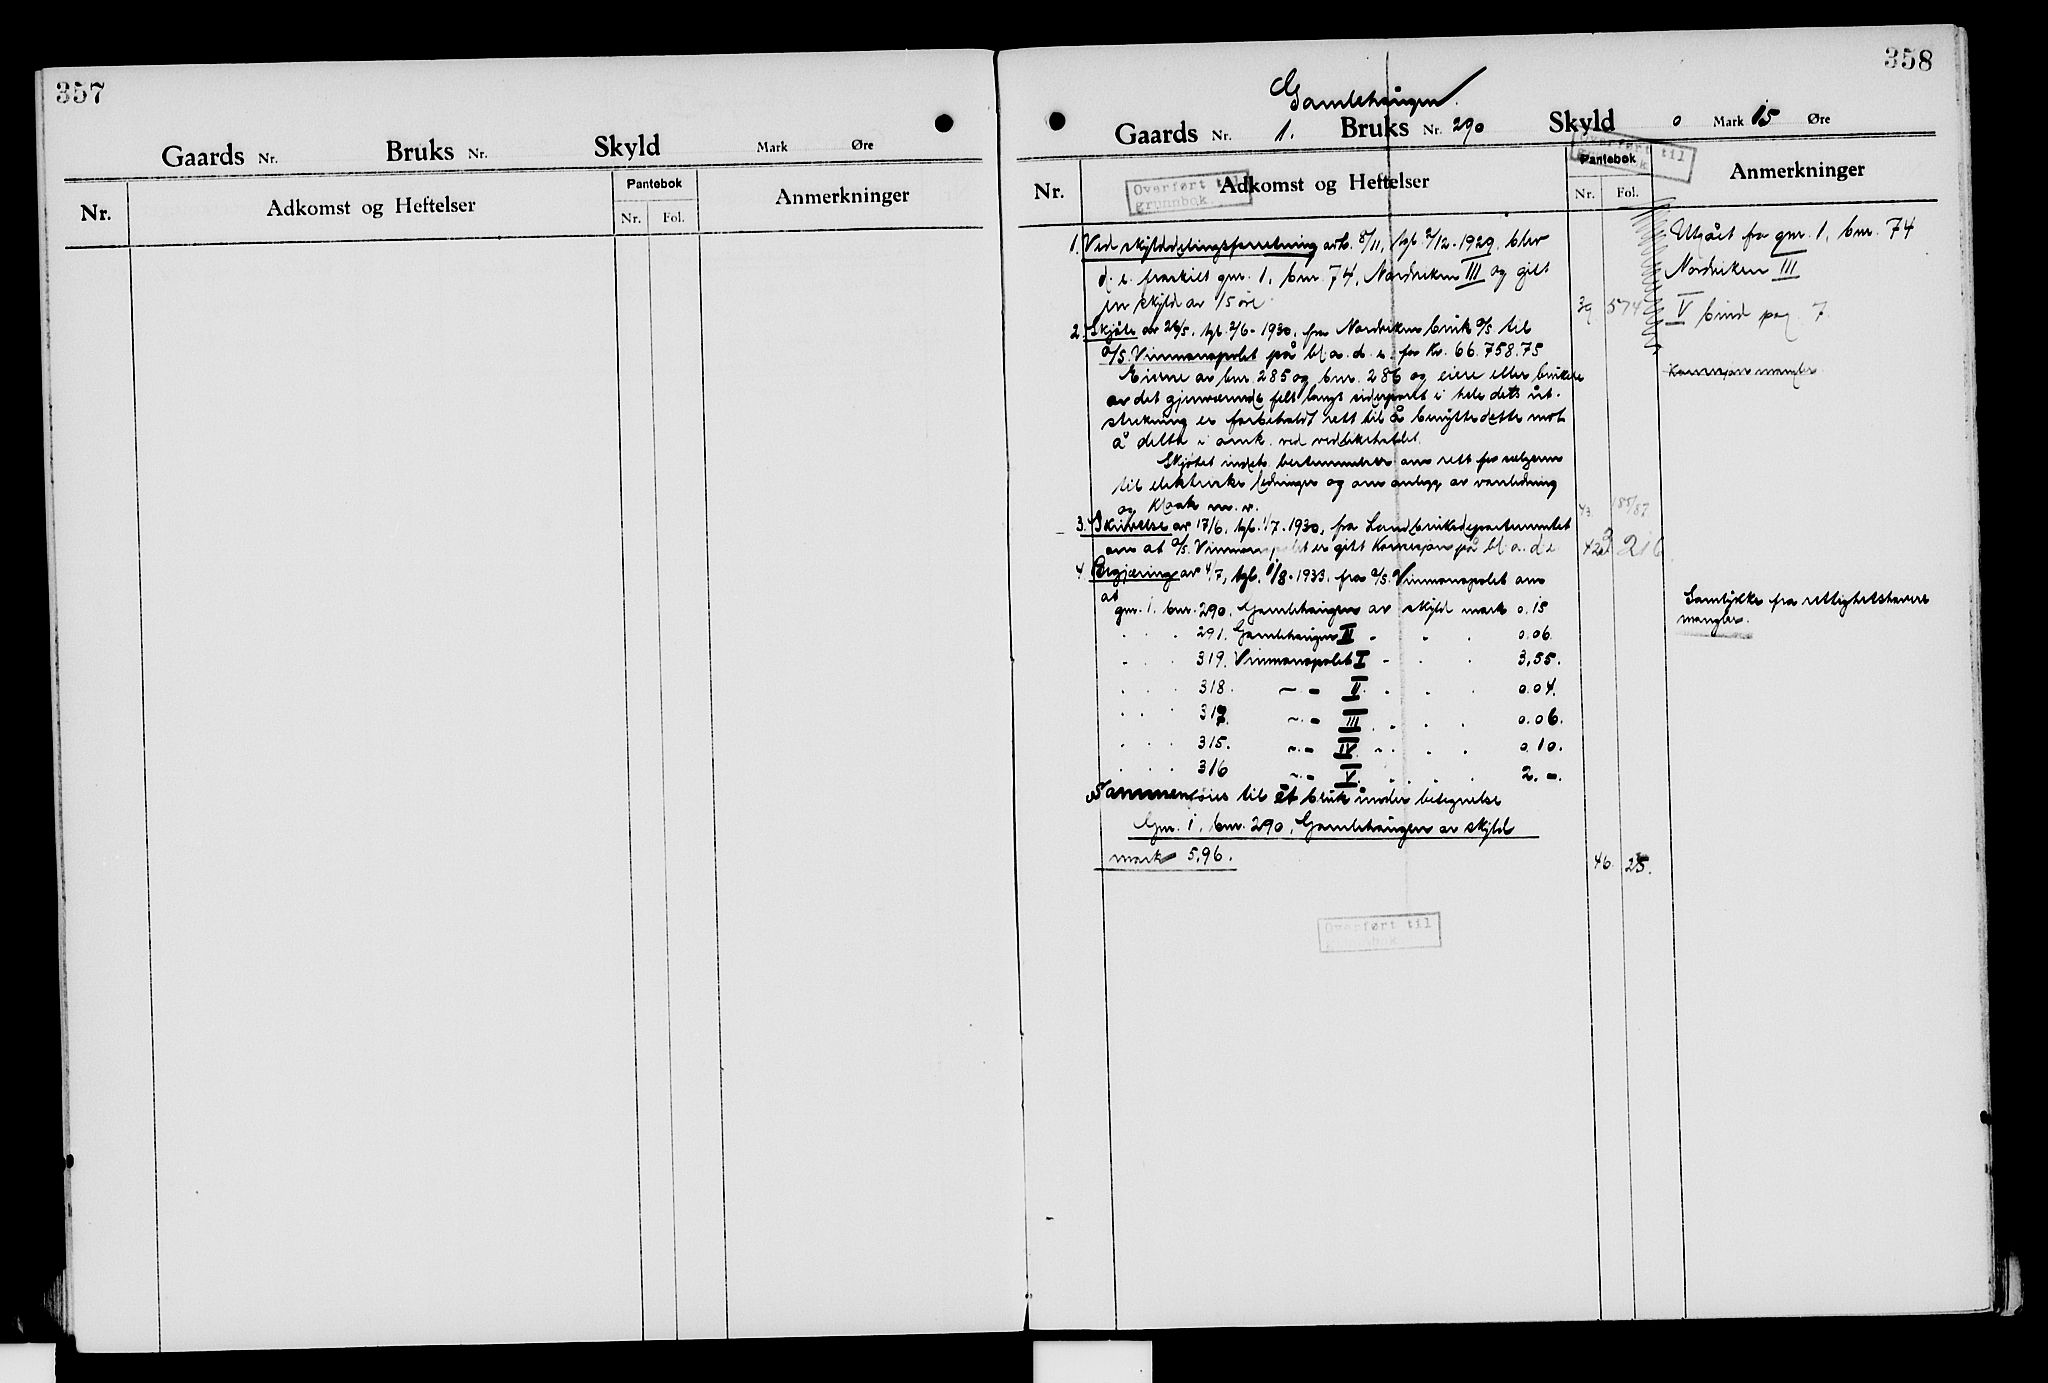 357
Gaards Nr. Bruks Nr. Skyld Mark Øre
Nr. Adkomst og Heftelser Pantebok Nr. Fol. Anmerkninger
358
Gamlehaugen.
Gaards Nr. 1. Bruks Nr. 290 Skyld 0 Mark 15 Øre
Overført til grunnbok
Nr. Adkomst og Heftelser Pantebok Nr. Fol. Anmerkninger
Overført til
grunnbok
1. Ved skylddelingsforretning avh. 8/11, tgl. 2/12-1929, blev
d. e. fraskilt gnr. 1, bnr. 74, Nordviken III og gitt
en skyld av 15 øre 39 574
Utgået fra gnr. 1, bnr. 74
Nordviken III
V bind pag. 7
2. Skjøte av 26/5, tgl. 2/6-1930, fra Nordvikens bruk a/s til
a/s. Vinmonopolet på bl.a. d. e. for Kr. 66.758.75
Konsesjon mangler
Eierne av bnr. 285 og bnr. 286 og eiere eller brukere
av det gjenværende felt langs sidesporet i hele dets ut-
strekning er forbeholdt rett til å benytte dette mot
å delta i omk. ved vedlikeholdet.
Skjøtet indeh. bestemmelser om rett for selgeren
til elektriske ledninger og om anlegg av vanledning
og kloak m. v. 43. 185/87
3. Skrivelse av 17/6, tgl. 1/7-1930, fra Landbruksdepartementet
om at a/s. Vinmonopolet er gitt konsesjon på bl.a. d. e. 216
4. Begjæring av 4/7, tgl. 1/8-1933, fra a/s. Vinmonopolet om
at
gnr. 1, bnr. 290, Gamlehaugen av skyld mark 0.15
. . . 291. Gamlehaugen II - . . 0.06
. . . 319. Vinmonopolet I - . . 3,55.
. . . 318. -"- II . . . 0.04.
. . . 317. -"- III . . . 0.06.
. . . 315. -"- IV . . . 0.10.
. . . 316 -"- V . . . 2.-.
Samtykke fra rettighetshavere
mangler.
Sammenføies til ét bruk under betegnelse
Gnr. 1, bnr. 290, Gamlehaugen av skyld
mark 5,96. 46 25.
Overført til
grunnbok